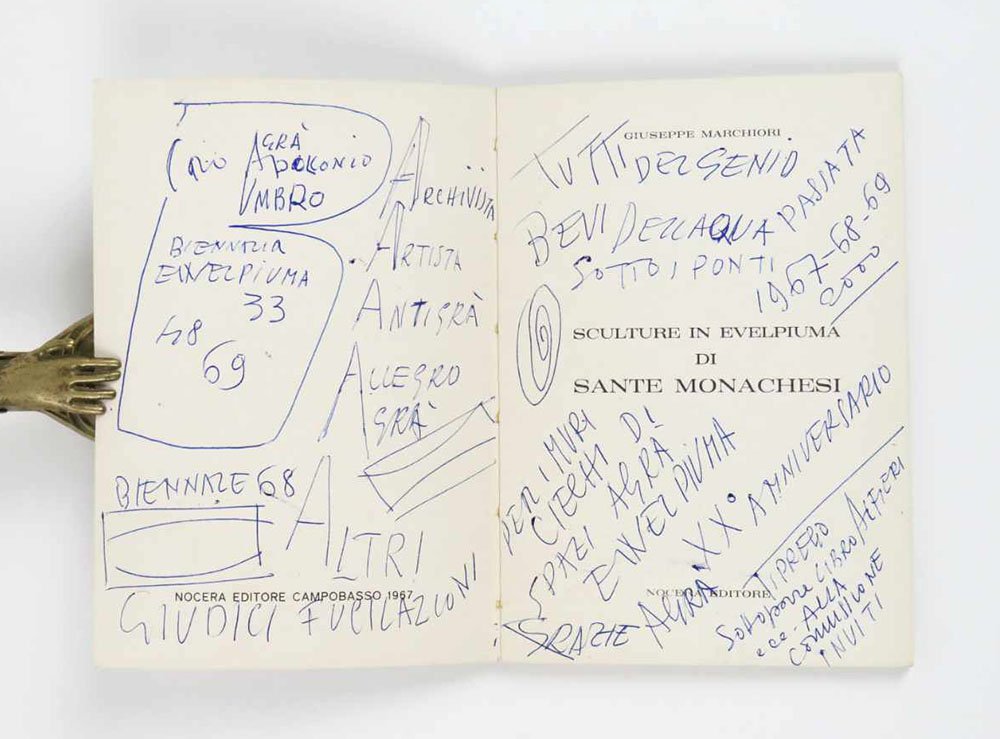 AGRÀ
APOLLONIO
UMBRO
BIENNALIA
EVVELPIUMA
33
68
69
ARCHIVISTA
ARTISTA
ANTIGRÀ
ALLEGRO
AGRÀ
BIENNALE 68
ALTRI
NOCERA EDITORE CAMPOBASSO 1967
GIUDICI FUCILAZIONI
GIUSEPPE MARCHIORI
TUTTI DEL GENIO
BEVI DELL'ACQUA PASSATA
SOTTO I PONTI
1967-68-69
2000
SCULTURE IN EVELPIUMA
DI
SANTE MONACHESI
PER I MURI
CIECHI DI
SPAZI AGRÀ
EVVELPIUMA
GRAZIE AGRÀ XX° ANNIVERSARIO
NOCERA EDITORE
TI PREGO
SOTTOPORRE LIBRO ALFIERI
ecc. ALLA
COMMISSIONE
INVITI